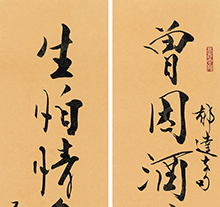 曾因酒
郁達夫句
生怕情